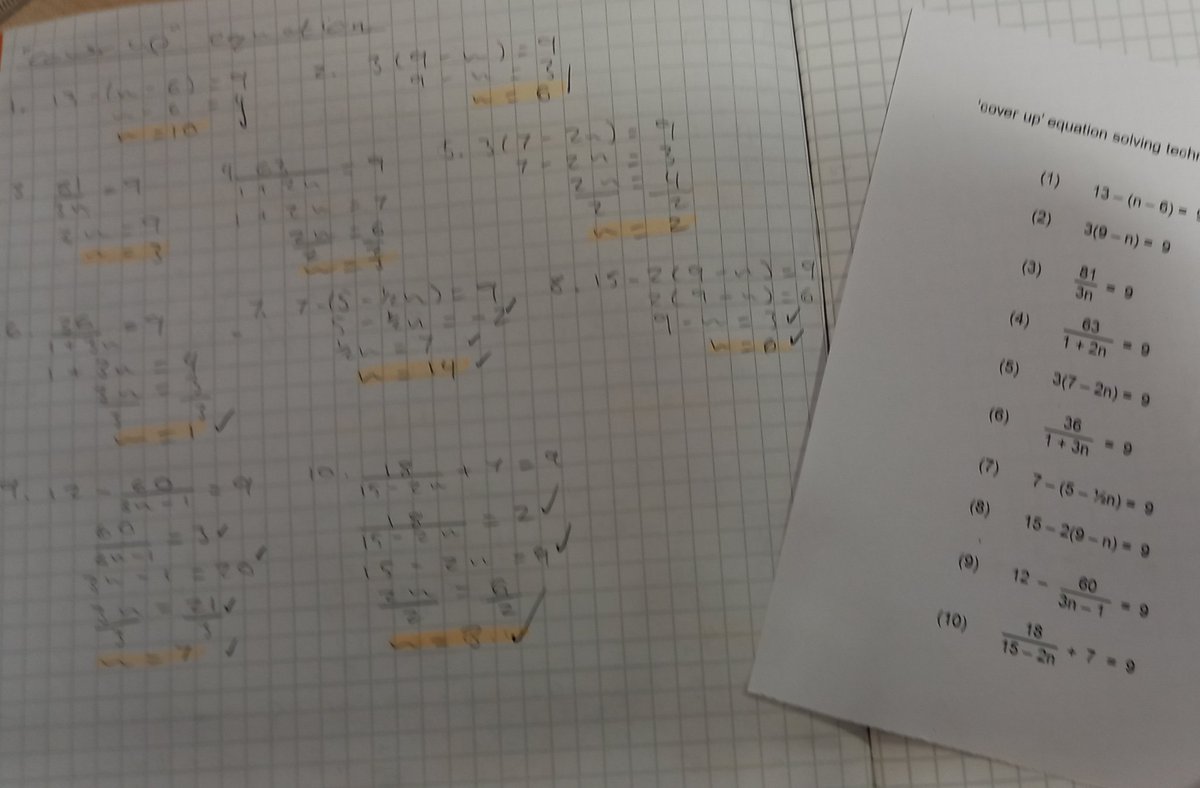 "cover up" equation
1. 13 - (n - 6) = 9
n - 6 = 4
n = 10
2. 3(9 - n) = 9
9 - n = 3
n = 6
3. 81/3n = 9
3n = 9
n = 3
4. 63/1 + 2n = 9
1 + 2n = 7
n = 3
5. 3(7 - 2n) = 9
7 - 2n = 3
n = 2
6. 36/1 + 3n = 9
1 + 3n = 4
n = 1
n = 14
8. 15 - 2(9 - n) = 9
n = 6
9. 12 - 60/3n - 1 = 9
60/3n - 1 = 3
3n - 1 = 20
3n/3 = 21/3
n = 7
10. 18/15 - 2n + 7 = 9
18/15 - 2n = 2
15 - 2n = 9
2n/2 = 6/2
n = 3
'cover up' equation solving
(1) 13 – (n – 6) =
(2) 3(9 – n) = 9
(3) 81/3n = 9
(4) 63/1 + 2n = 9
(5) 3(7 – 2n) = 9
(6) 36/1 + 3n = 9
(7) 7 – (5 – ½n) = 9
(8) 15 – 2(9 – n) = 9
(9) 12 – 60/3n – 1 = 9
(10) 18/15 – 2n + 7 = 9